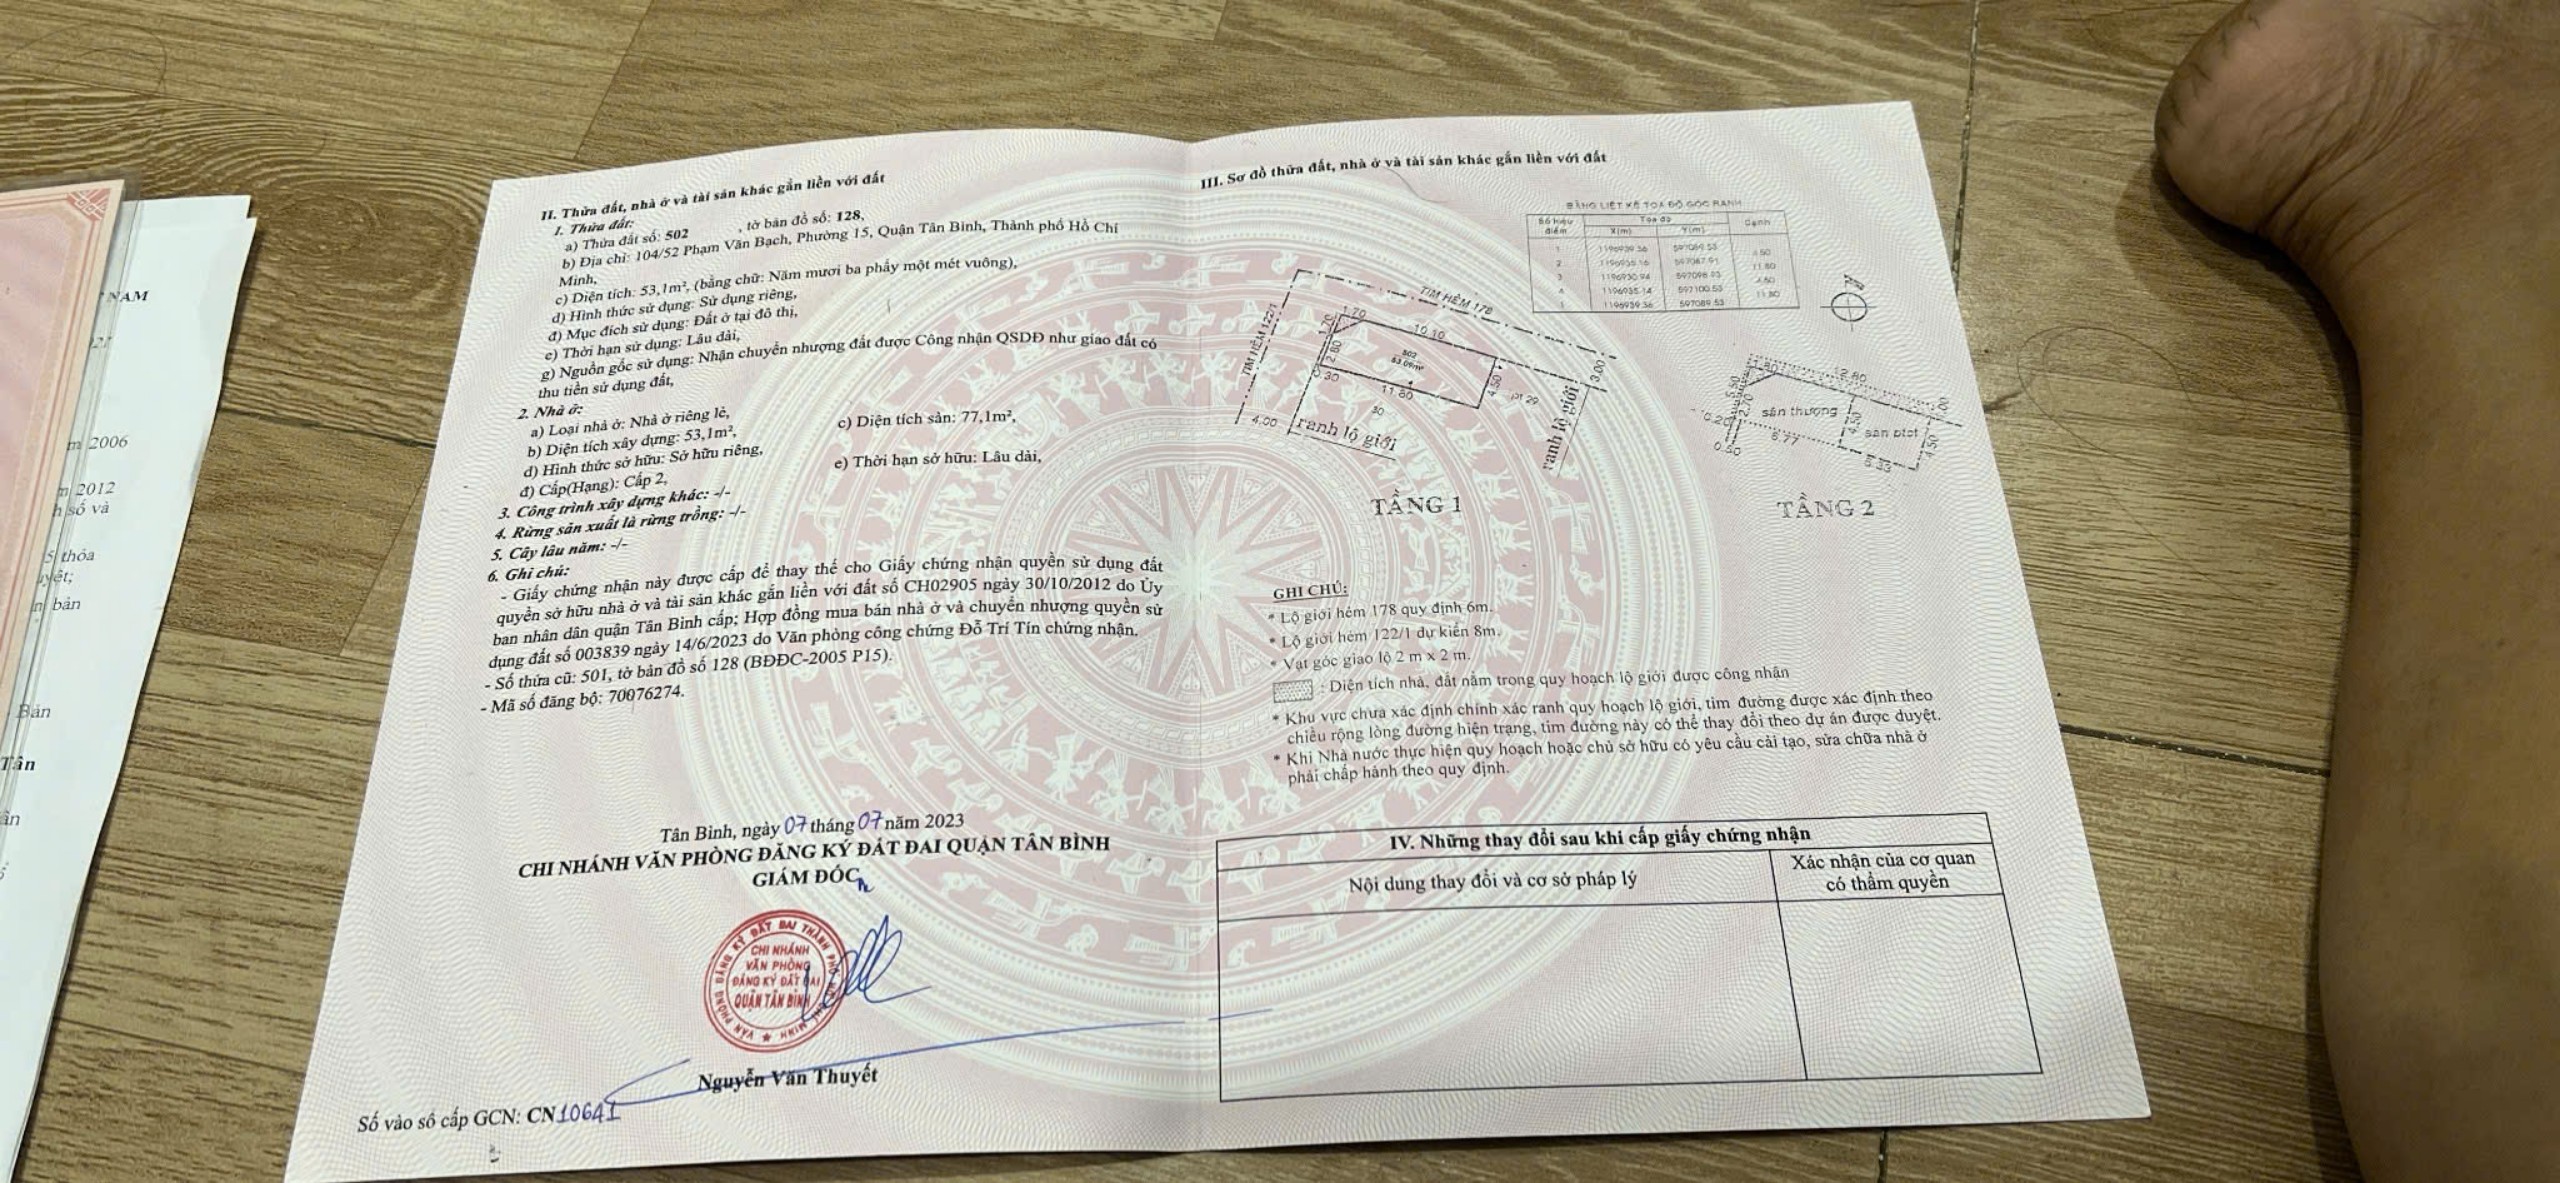 NAM
m 2006
m 2012
h số và
thỏa
yệt;
n bản
Bản
Tân
ân
II. Thửa đất, nhà ở và tài sản khác gắn liền với đất
1. Thửa đất:
a) Thửa đất số: 502 , tờ bản đồ số: 128,
b) Địa chỉ: 104/52 Phạm Văn Bạch, Phường 15, Quận Tân Bình, Thành phố Hồ Chí
Minh,
c) Diện tích: 53,1m², (bằng chữ: Năm mươi ba phẩy một mét vuông),
d) Hình thức sử dụng: Sử dụng riêng,
đ) Mục đích sử dụng: Đất ở tại đô thị,
e) Thời hạn sử dụng: Lâu dài,
g) Nguồn gốc sử dụng: Nhận chuyển nhượng đất được Công nhận QSDĐ như giao đất có
thu tiền sử dụng đất,
2. Nhà ở:
a) Loại nhà ở: Nhà ở riêng lẻ,
b) Diện tích xây dựng: 53,1m², c) Diện tích sàn: 77,1m²,
d) Hình thức sở hữu: Sở hữu riêng, e) Thời hạn sở hữu: Lâu dài,
đ) Cấp(Hạng): Cấp 2,
3. Công trình xây dựng khác: -/-
4. Rừng sản xuất là rừng trồng: -/-
5. Cây lâu năm: -/-
6. Ghi chú:
- Giấy chứng nhận này được cấp để thay thế cho Giấy chứng nhận quyền sử dụng đất
quyền sở hữu nhà ở và tài sản khác gắn liền với đất số CH02905 ngày 30/10/2012 do Ủy
ban nhân dân quận Tân Bình cấp; Hợp đồng mua bán nhà ở và chuyển nhượng quyền sử
dụng đất số 003839 ngày 14/6/2023 do Văn phòng công chứng Đỗ Trí Tín chứng nhận.
- Số thửa cũ: 501, tờ bản đồ số 128 (BĐĐC-2005 P15).
- Mã số đăng bộ: 70076274.
Tân Bình, ngày 07 tháng 07 năm 2023
CHI NHÁNH VĂN PHÒNG ĐĂNG KÝ ĐẤT ĐAI QUẬN TÂN BÌNH
GIÁM ĐỐC
CHI NHÁNH
VĂN PHÒNG
ĐĂNG KÝ ĐẤT ĐAI
QUẬN TÂN BÌNH
Nguyễn Văn Thuyết
Số vào sổ cấp GCN: CN10641
III. Sơ đồ thửa đất, nhà ở và tài sản khác gắn liền với đất
BẢNG LIỆT KÊ TỌA ĐỘ GÓC RANH
Số hiệu điểm Tọa độ Cạnh
X(m) Y(m)
1 1196939.36 597089.53
4.50
2 597087.91
11.80
3 1196930.94 597098.93
4.50
4 1196935.14 597100.53
11.80
1 1196939.36 597089.53
TIM HẺM 178
TIM HẺM 122/1
1.70
1.70
10.10
2.80
502
53.09m²
4.50
0.30
11.80
pt 29
3.00
30
4.00
ranh lộ giới
ranh lộ giới
TẦNG 1
12.80
2.70
sân thượng
4.50
sàn btct
4.50
0.20
6.77
0.50
5.33
TẦNG 2
GHI CHÚ:
* Lộ giới hẻm 178 quy định 6m.
* Lộ giới hẻm 122/1 dự kiến 8m.
* Vạt góc giao lộ 2 m x 2 m.
: Diện tích nhà, đất nằm trong quy hoạch lộ giới được công nhận
* Khu vực chưa xác định chính xác ranh quy hoạch lộ giới, tim đường được xác định theo
chiều rộng lòng đường hiện trạng, tim đường này có thể thay đổi theo dự án được duyệt.
* Khi Nhà nước thực hiện quy hoạch hoặc chủ sở hữu có yêu cầu cải tạo, sửa chữa nhà ở
phải chấp hành theo quy định.
IV. Những thay đổi sau khi cấp giấy chứng nhận
Nội dung thay đổi và cơ sở pháp lý
Xác nhận của cơ quan
có thẩm quyền